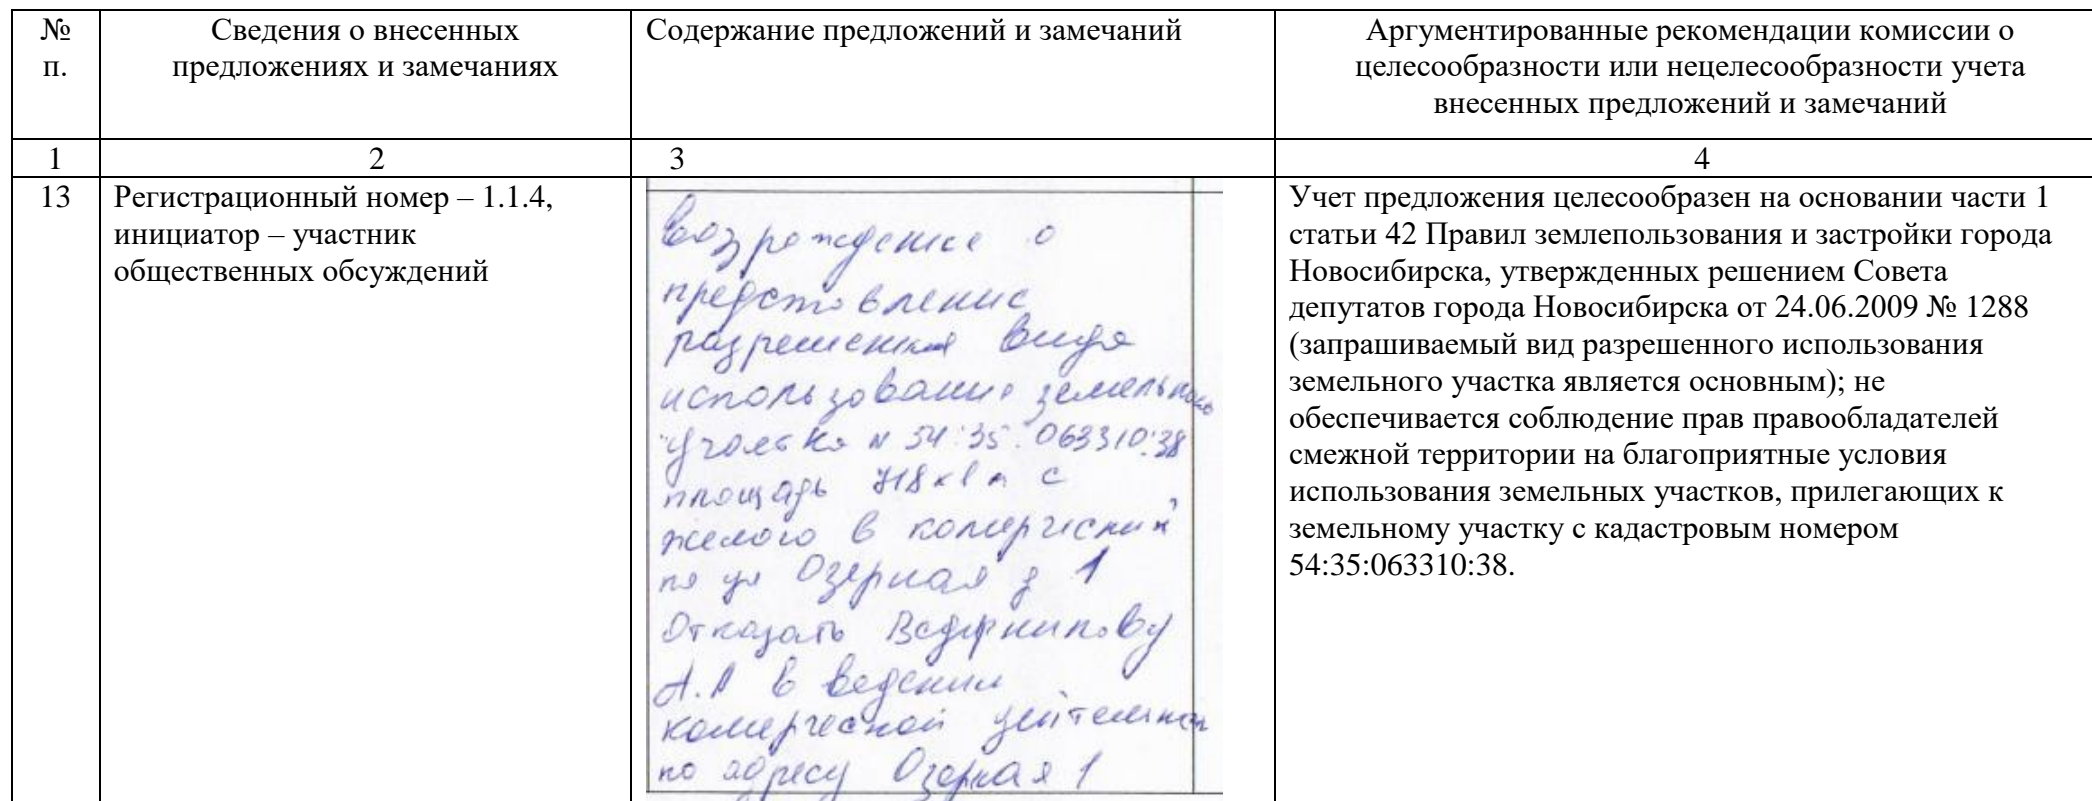 №
п.
Сведения о внесенных
предложениях и замечаниях
Содержание предложений и замечаний
Аргументированные рекомендации комиссии о
целесообразности или нецелесообразности учета
внесенных предложений и замечаний
1
2
3
4
13
Регистрационный номер – 1.1.4,
инициатор – участник
общественных обсуждений
возрождение о
представление
разрешения вида
использование земельного
участка N 54:35:063310:38
площадь 718 кв м с
жилого в комерческий
по ул Озерная д 1
Отказать Ведерникову
А.А в ведении
комерческой
по адресу Озерная 1
Учет предложения целесообразен на основании части 1
статьи 42 Правил землепользования и застройки города
Новосибирска, утвержденных решением Совета
депутатов города Новосибирска от 24.06.2009 № 1288
(запрашиваемый вид разрешенного использования
земельного участка является основным); не
обеспечивается соблюдение прав правообладателей
смежной территории на благоприятные условия
использования земельных участков, прилегающих к
земельному участку с кадастровым номером
54:35:063310:38.